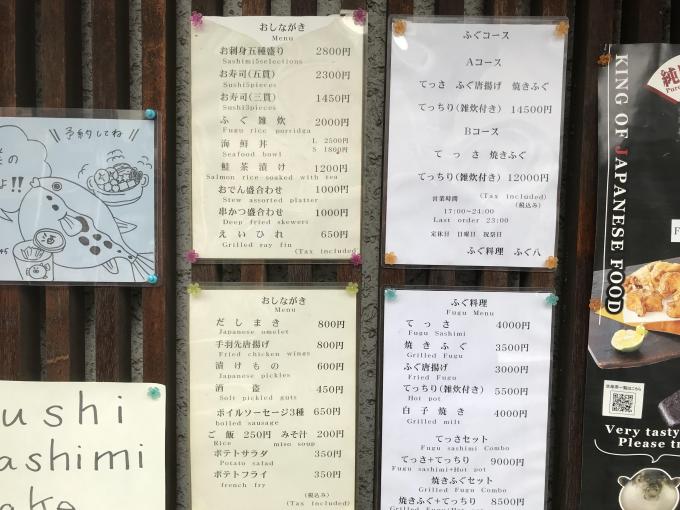 予約してね
の
よ!!
ushi
ashimi
ake
おしながき
Menu
お刺身五種盛り 2800円
Sashimi5selections
お寿司(五貫) 2300円
Sushi5pieces
お寿司(三貫) 1450円
Sushi3pieces
ふぐ雑炊 2000円
Fugu rice porridga
海鮮丼 L 2500円
S 1860円
Seafood bowl
鮭茶漬け 1200円
Salmon rice soaked with tea
おでん盛合わせ 1000円
Stew assorted platter
串かつ盛合わせ 1000円
Deep fried skewers
えいひれ 650円
Grilled ray fin
(Tax included
おしながき
Menu
だしまき 800円
Japanese omelet
手羽先唐揚げ 800円
Fried chicken wings
漬けもの 600円
Japanese pickles
酒盗 450円
Solt pickled guts
ボイルソーセージ3種 650円
boiled sausage
ご飯 250円 みそ汁 200円
Rice miso soup
ポテトサラダ 350円
Potato salad
ポテトフライ 350円
french fry
(税込み)
(Tax included
ふぐコース
Aコース
てっさ ふぐ唐揚げ 焼きふぐ
てっちり(雑炊付き) 14500円
Bコース
てっさ 焼きふぐ
てっちり(雑炊付き) 12000円
(Tax included)
(税込み)
営業時間
17:00~24:00
Last order 23:00
定休日 日曜日 祝祭日
ふぐ料理 ふぐ八
ふぐ料理
Fugu Menu
てっさ 4000円
Fugu Sashimi
焼きふぐ 3500円
Grilled Fugu
ふぐ唐揚げ 3000円
Fried Fugu
てっちり(雑炊付き) 5500円
Hot pot
白子焼き 4000円
Grilled milt
てっさセット
Fugu sashimi Combo
てっさ+てっちり 9000円
Fugu sashimi+Hot pot
焼きふぐセット
Grilled Fugu Combo
焼きふぐ+てっちり 8500円
純
Pure
KING OF JAPANESE FOOD
F
Very tasty
Please tr